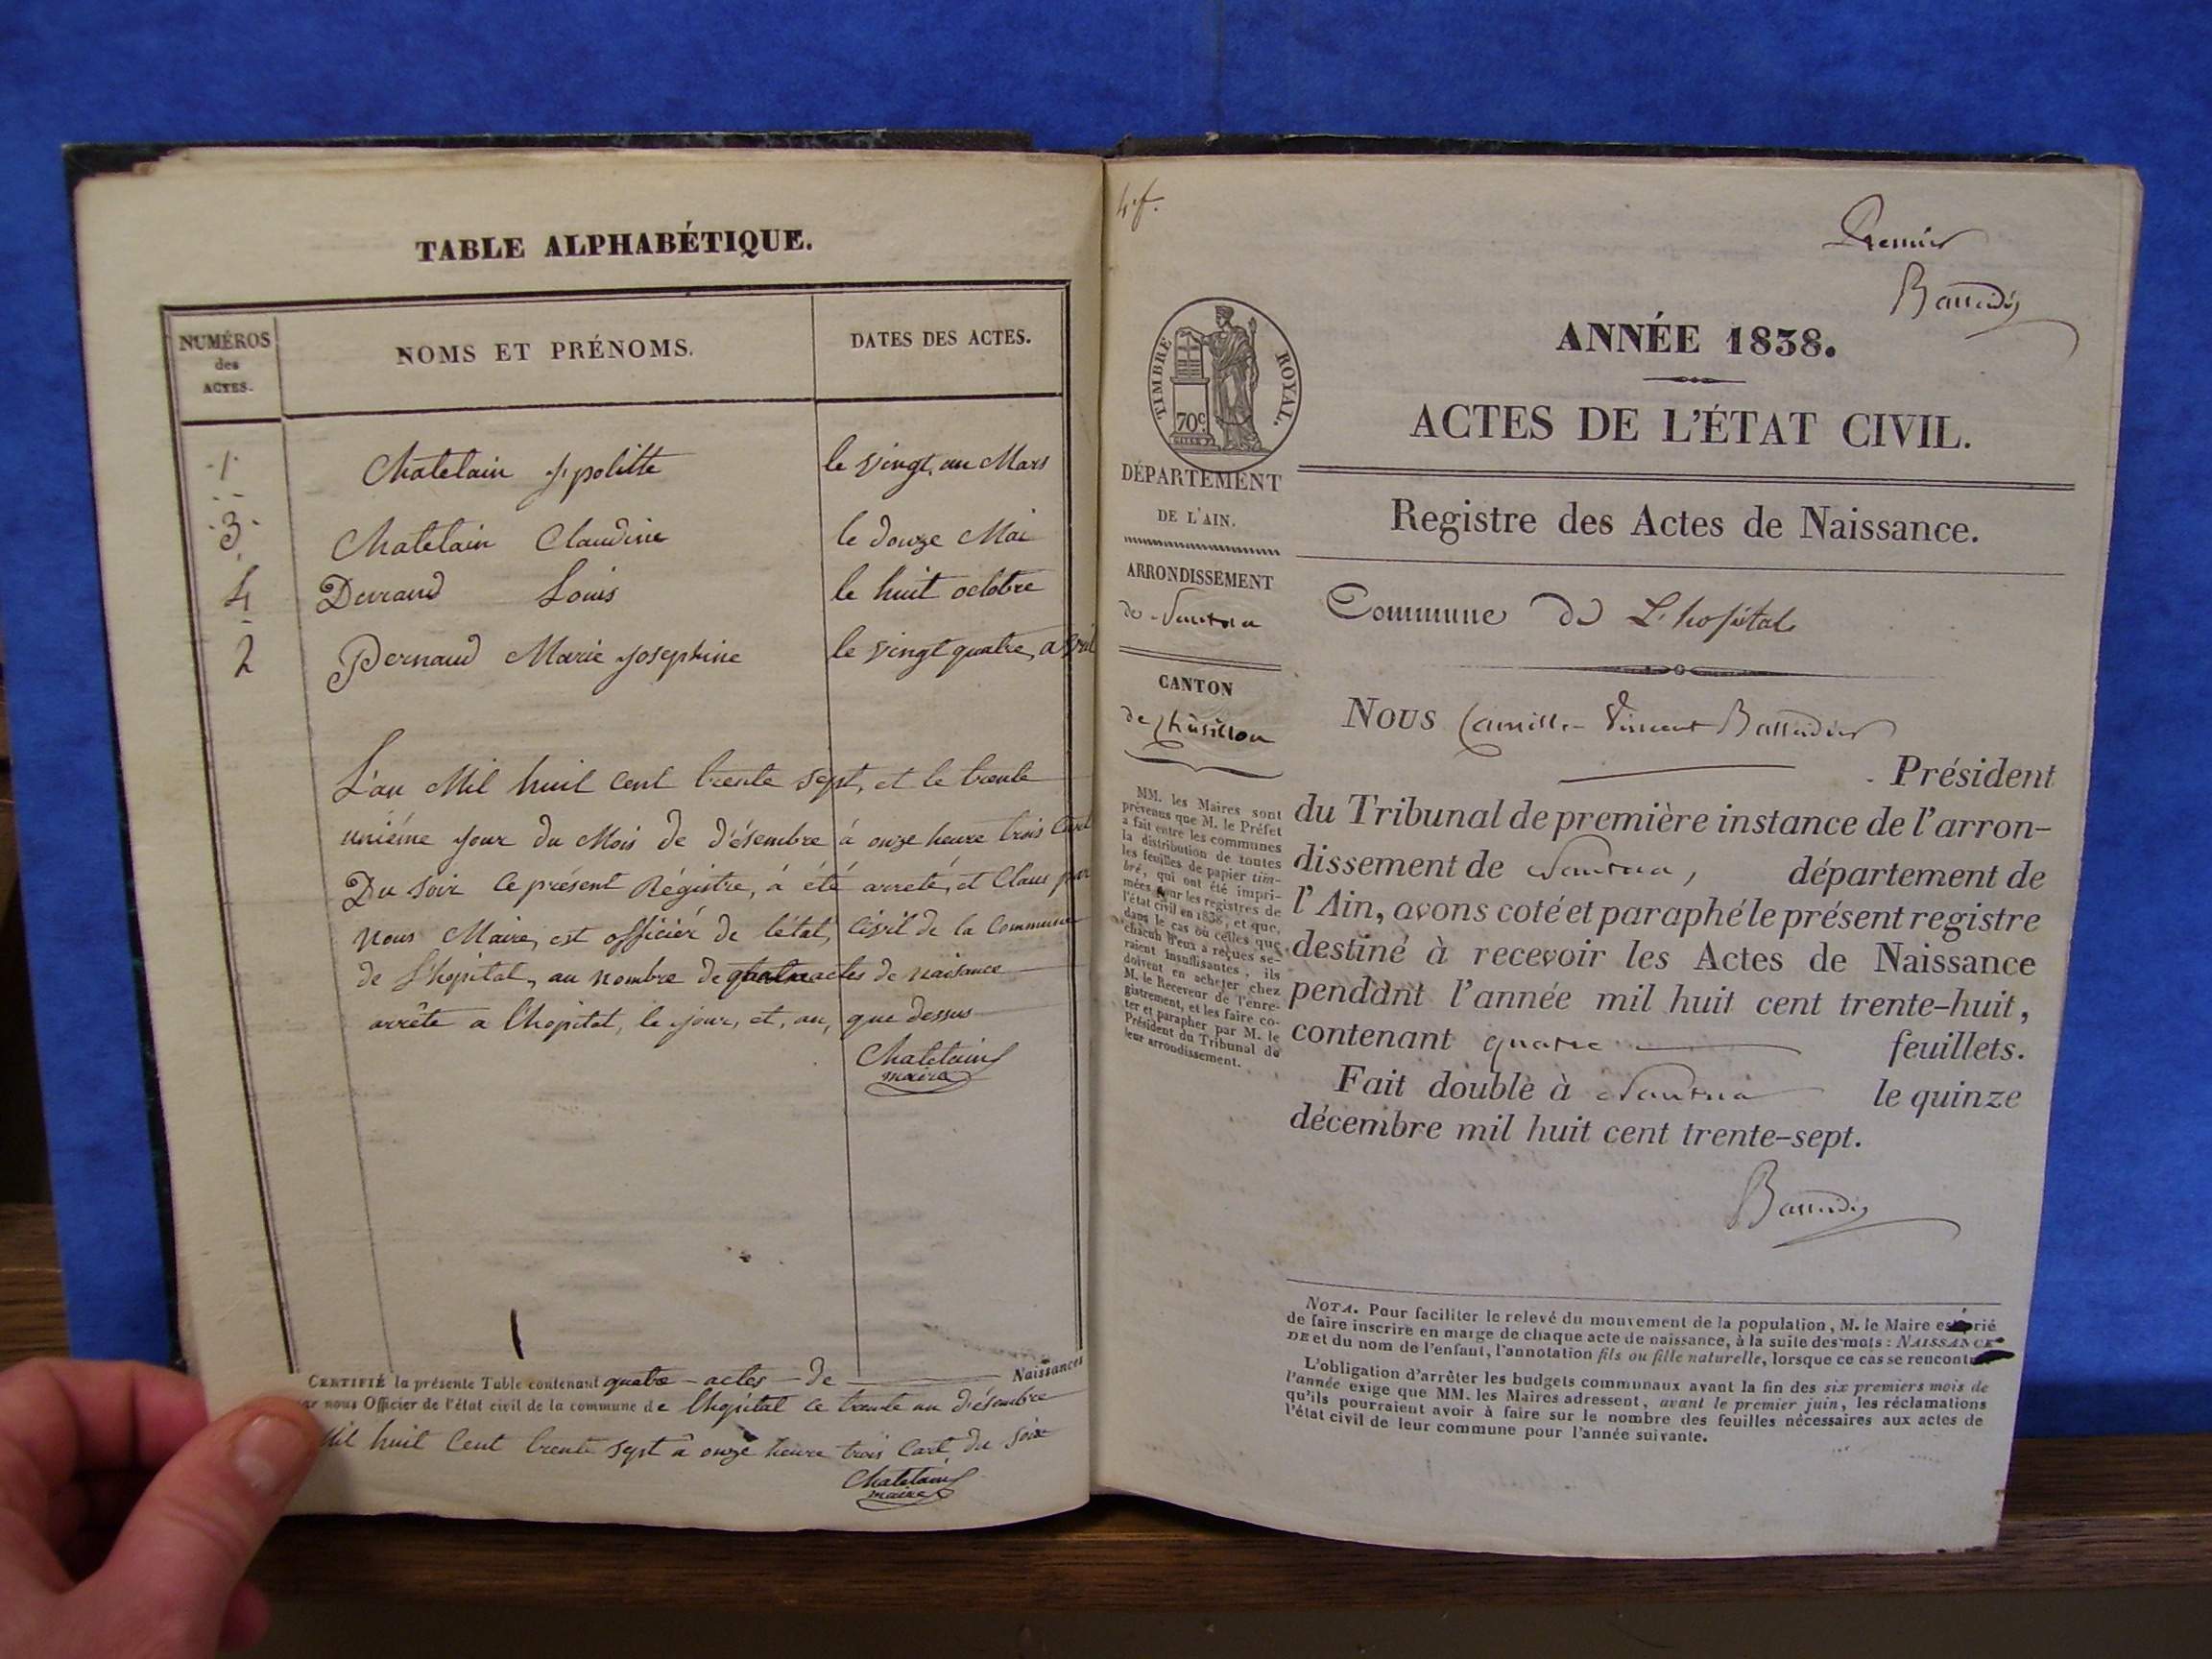 TABLE ALPHABÉTIQUE.
NUMÉROS
des
ACTES.
NOMS ET PRÉNOMS.
DATES DES ACTES.
1 Chatelain Ypolitte le vingt un Mars
3 Chatelain Claudine le douze Mai
4 Durand Louis le huit octobre
2 Pernaud Marie Josephine le vingt quatre avril
L'an Mil huit cent trente sept, et le trente
unième jour du Mois de désembre à onze heure trois Cart
Du soir ce présent Régistre, à été arreté, et Claus par
nous Maire, est officiér de létat, Civil de la Commune
de L'hopital, au nombre de quatre actes de naisance
arrête a l'hopital, le jour, et, an, que dessus
Chatelain
maire
CERTIFIÉ la présente Table contenant quatre actes de Naissances
par nous Officier de l'état civil de la commune de l'hopital ce trente un désembre
Mil huit Cent trente sept à onze heure trois Cart du soir
Chatelain
maire
4 f.
Premier
ANNÉE 1838.
TIMBRE ROYAL.
70c
ACTES DE L'ÉTAT CIVIL.
DÉPARTEMENT
DE L'AIN.
ARRONDISSEMENT
de Nantua
CANTON
de
MM. les Maires sont
prévenus que M. le Préfet
a fait entre les communes
la distribution de toutes
les feuilles de papier tim-
bré, qui ont été impri-
mées pour les registres de
l'état civil en 1838, et que,
dans le cas où celles que
chacun d'eux a reçues se-
raient insuffisantes, ils
doivent en acheter chez
M. le Receveur de l'enre-
gistrement, et les faire co-
ter et parapher par M. le
Président du Tribunal de
leur arrondissement.
Registre des Actes de Naissance.
Commune de L'hopital
NOUS Camille Vincent
Président
du Tribunal de première instance de l'arron-
dissement de Nantua, département de
l'Ain, avons coté et paraphé le présent registre
destiné à recevoir les Actes de Naissance
pendant l'année mil huit cent trente-huit,
contenant quatre feuillets.
Fait double à Nantua le quinze
décembre mil huit cent trente-sept.
NOTA. Pour faciliter le relevé du mouvement de la population, M. le Maire est prié
de faire inscrire en marge de chaque acte de naissance, à la suite des mots : NAISSANCE
DE et du nom de l'enfant, l'annotation fils ou fille naturelle, lorsque ce cas se rencontre.
L'obligation d'arrêter les budgets communaux avant la fin des six premiers mois de
l'année exige que MM. les Maires adressent, avant le premier juin, les réclamations
qu'ils pourraient avoir à faire sur le nombre des feuilles nécessaires aux actes de
l'état civil de leur commune pour l'année suivante.